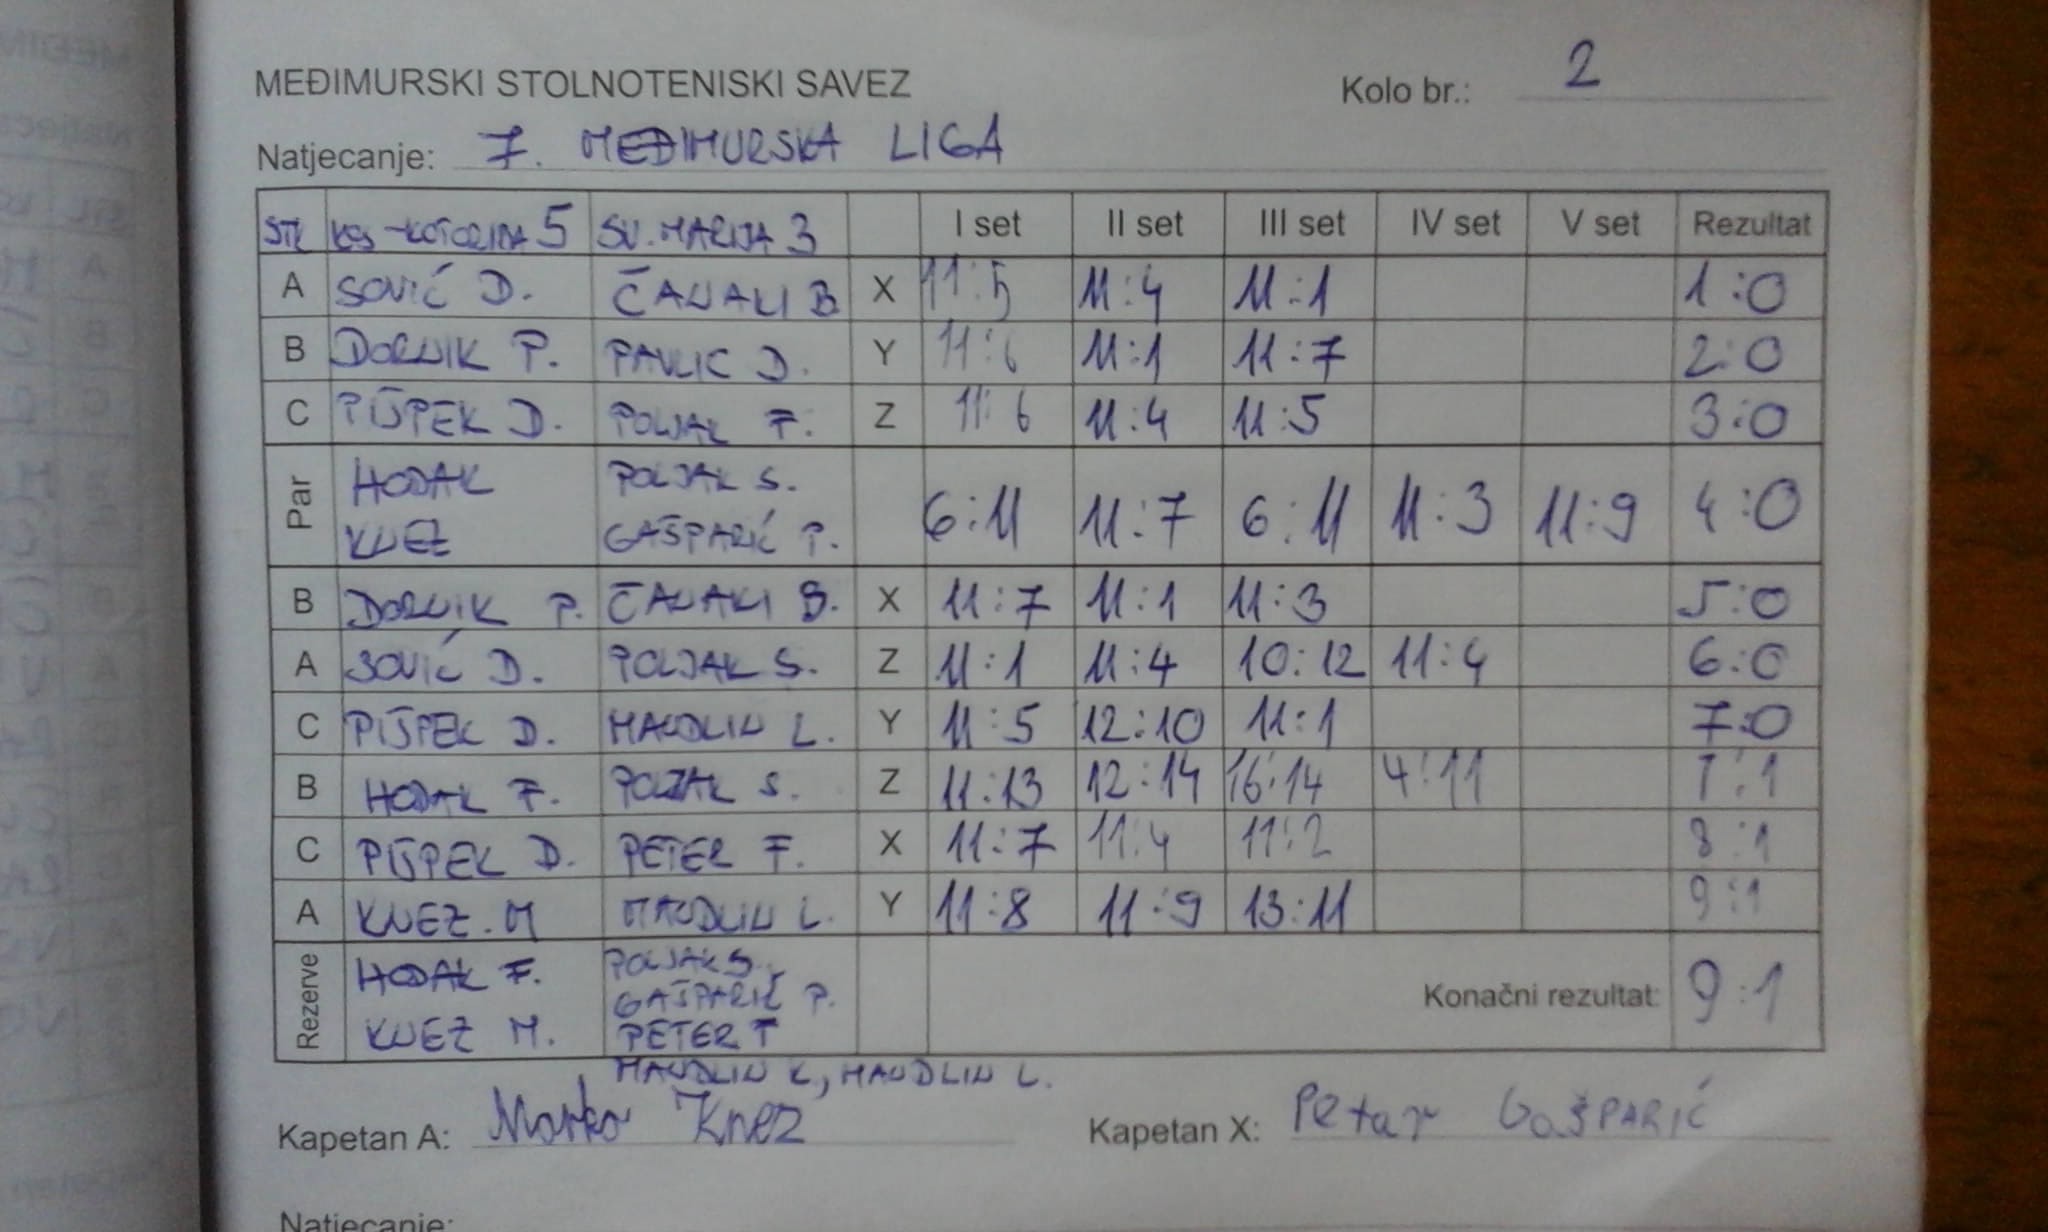 MEĐIMURSKI STOLNOTENISKI SAVEZ Kolo br.: 2
Natjecanje: 7. MEĐIMURSKA LIGA
STK KOS-KOTORIBA 5 SV. MARIJA 3 I set II set III set IV set V set Rezultat
A SOVIĆ D. ČANAKI B X 11:5 11:4 11:1 1:0
B DORNIK P. PAVLIC D. Y 11:6 11:1 11:7 2:0
C PIŠPEK D. POLJAK F. Z 11:6 11:4 11:5 3:0
Par HODAK KNEZ POLJAK S. GAŠPARIĆ P. 6:11 11:7 6:11 11:3 11:9 4:0
B DORNIK P. ČANAKI B. X 11:7 11:1 11:3 5:0
A SOVIĆ D. POLJAK S. Z 11:1 11:4 10:12 11:4 6:0
C PIŠPEK D. MANDLIN L. Y 11:5 12:10 11:1 7:0
B HODAK F. POLJAK S. Z 11:13 12:14 16:14 4:11 7:1
C PIŠPEK D. PETER F. X 11:7 11:4 11:2 8:1
A KNEZ. M MANDLIN L. Y 11:8 11:9 13:11 9:1
Rezerve HODAK F. KNEZ M. POLJAK S. GAŠPARIĆ P. PETER F Konačni rezultat: 9:1
MANDLIN K, MANDLIN L.
Kapetan A: Marko Knez Kapetan X: Petar GAŠPARIĆ
Natjecanje: